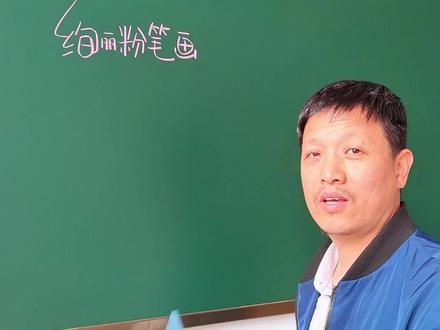 绚丽粉笔画